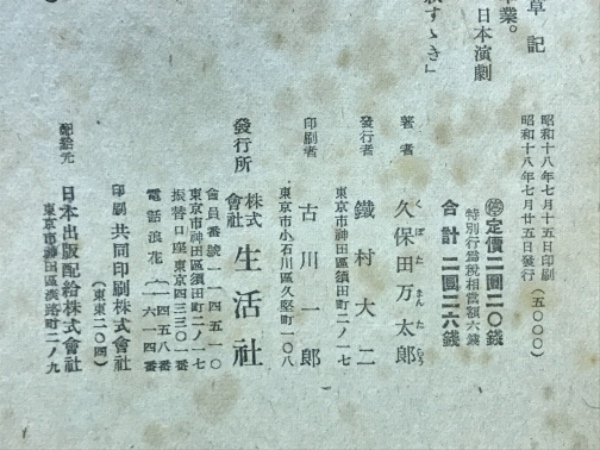 草記
卒業。
日本演劇
すゝき」
昭和十八年七月十五日印刷
昭和十八年七月廿五日發行
(五〇〇〇)
㊞定價二圓二〇錢
特別行爲税相當額六錢
合計 二圓二六錢
著者 久保田万太郎
くぼたまんたらう
發行者 鐵村大二
東京市神田區須田町二ノ一七
印刷者 古川一郎
東京市小石川區久堅町一〇八
發行所 株式會社 生活社
會員番號一一四五一〇
東京市神田區須田町二ノ一七
振替口座東京四三三〇一番
電話浪花(二四五八番
一六一四番
印刷 共同印刷株式會社
(東東二〇四)
配給元 日本出版配給株式會社
東京市神田區淡路町二ノ九